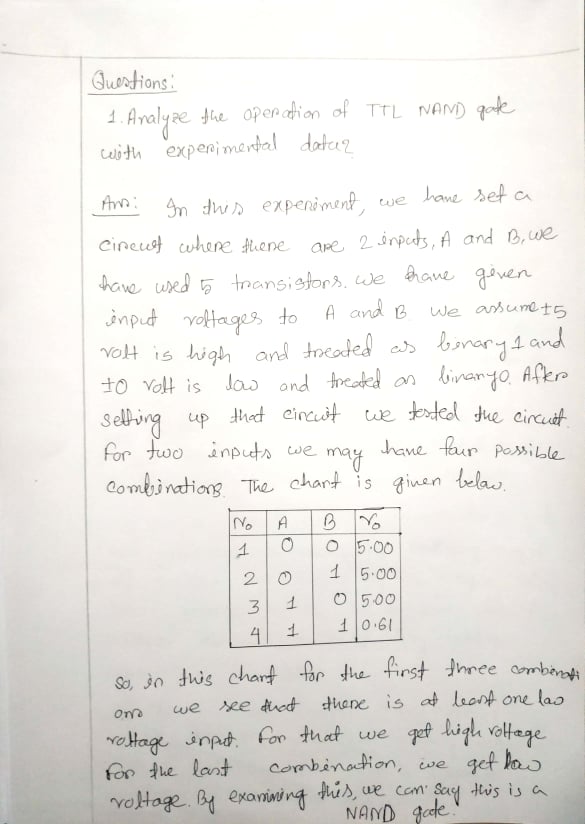 Questions:
1. Analyze the operation of TTL NAND gate
with experimental data?
Ans: In this experiment, we have set a
circuit where there are 2 inputs, A and B, we
have used 5 transistors. We have given
input voltages to A and B. We assume +5
volt is high and treated as binary 1 and
+0 volt is low and treated as binary 0. After
setting up that circuit we tested the circuit.
For two inputs we may have four possible
combinations. The chart is given below.
No A B Vo
1 0 0 5.00
2 0 1 5.00
3 1 0 5.00
4 1 1 0.61
So, in this chart for the first three combinati
ons we see that there is at least one low
voltage input. For that we get high voltage
for the last combination, we get low
voltage. By examining this, we can say this is a
NAND gate.